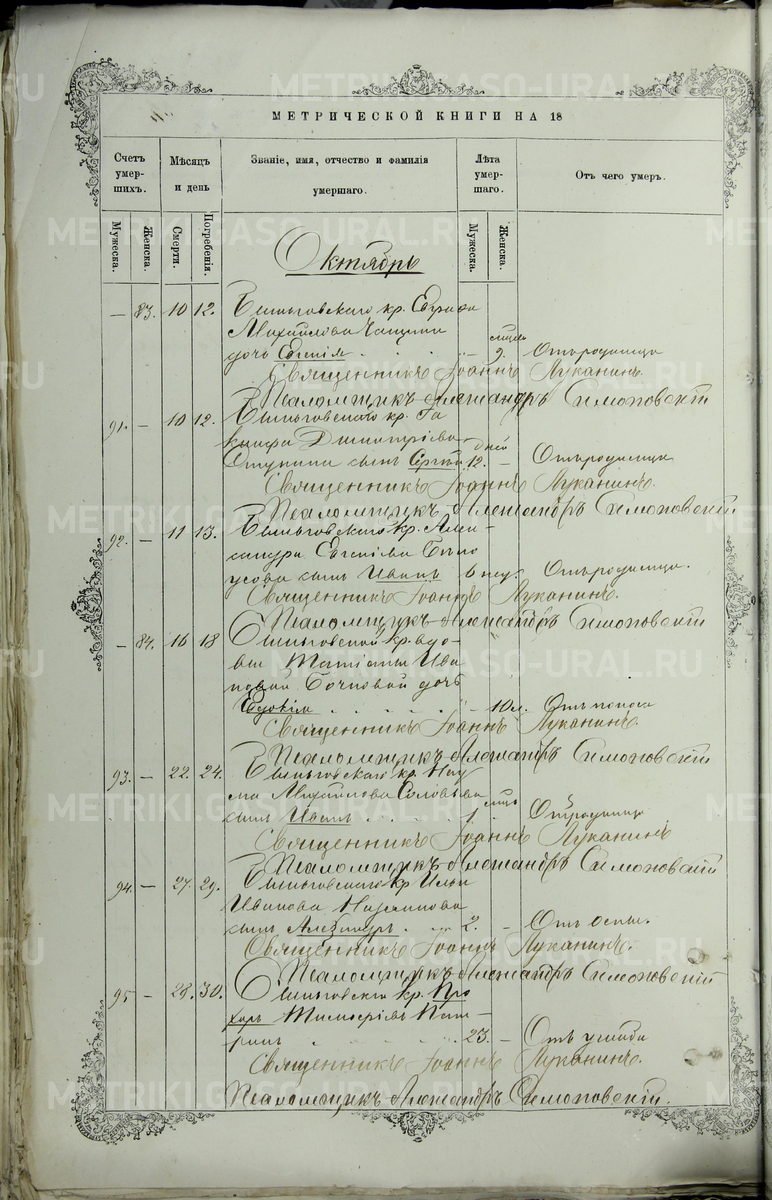 МЕТРИЧЕСКОЙ КНИГИ НА 18
Счетъ умер- шихъ.
Мѣсяцъ и день
Званіе, имя, отчество и фамилія умершаго.
Лѣта умер- шаго.
Отъ чего умеръ.
Мужеска.
Женска.
Смерти.
Погребенія.
Мужеска.
Женска.
Октябрь
— 83. 10 12. кр.
Михайлова
дочь Евгенія 9. Отъ родимца
Священникъ Іоаннъ Луканинъ.
Псаломщикъ Александръ Симоновскій
91. — 10 12. кр.
Димитріева дней
сынъ Сергѣй 12. — Отъ родимца
Священникъ Іоаннъ Луканинъ.
Псаломщикъ Александръ Симоновскій
92. — 11 13. кр. Алек-
сандра Евгеніева
сынъ Иванъ 6 нед. Отъ родимца.
Священникъ Іоаннъ Луканинъ.
Псаломщикъ Александръ Симоновскій
— 84. 16 18 кр. вдо-
вы Татіаны Ива
новой дочь
Евдокія 10 л. Отъ поноса
Священникъ Іоаннъ Луканинъ.
Псаломщикъ Александръ Симоновскій
93. — 22. 24. кр. Нау
ма Михайлова Соловьева
сынъ Иванъ 1. Отъ родимца
Священникъ Іоаннъ Луканинъ
Псаломщикъ Александръ Симоновскій
94. — 27. 29. кр. Ильи
Иванова
сынъ Александръ 2. — Отъ оспы.
Священникъ Іоаннъ Луканинъ.
Псаломщикъ Александръ Симоновскій
95 — 28. 30. кр. Про
хоръ Тимофѣевъ
23. — Отъ
Священникъ Іоаннъ Луканинъ.
Псаломщикъ Александръ Симоновскій.
METRIKI.GASO-URAL.RU